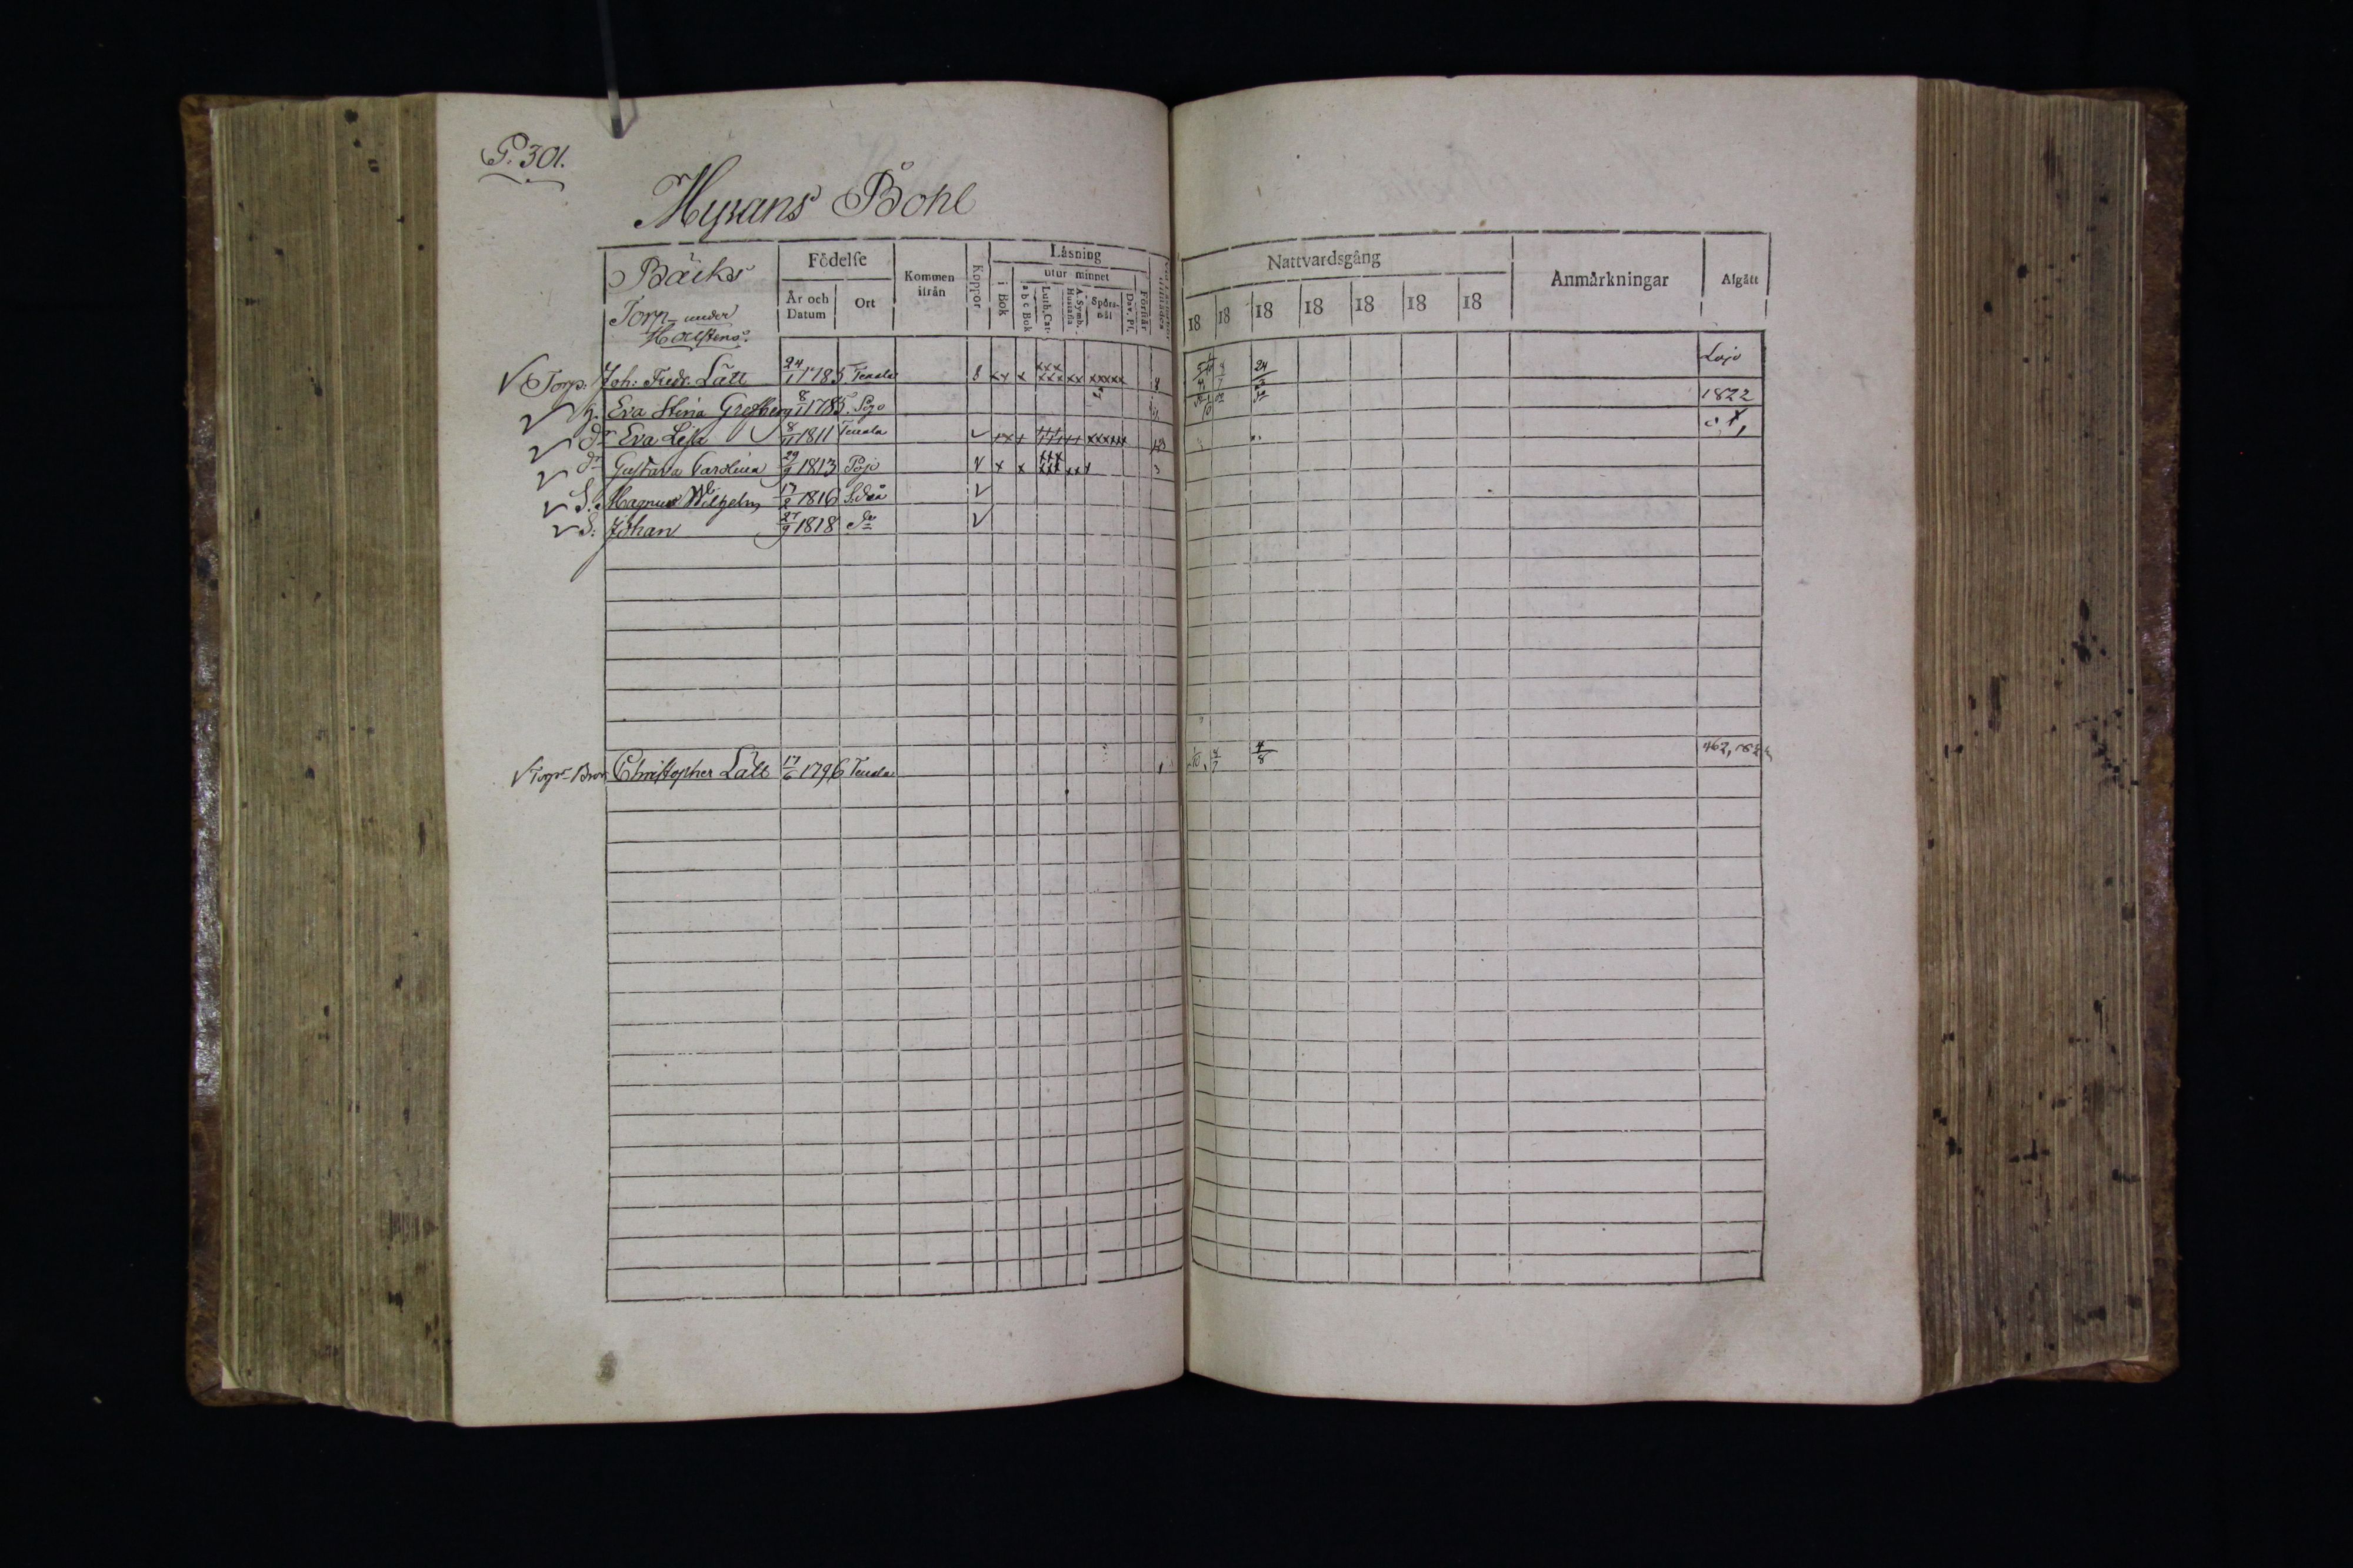 P. 301.
Myrans Bohl
Bäcks
Torp under
Hålstens.
Födelse
År och Datum
Ort
Kommen ifrån
Koppor
Läsning
i Bok
utur minnet
a b c Bok
Luth. Cat.
A. Symb. Hustafla
Spörsmål
Dav. Ps.
Förstår
Nattvardsgång
18 18 18 18 18 18 18
Anmärkningar
Afgått
Torp. Joh: Fredr. Lätt 24/1 1785 Tenala 8 xx x xxx xxx xx xxxxx 24 Lojo
h. Eva Stina Grefberg 8/1 1785 Pojo 1822
Dr Eva Lisa 8/11 1811 Tenala
dr Gustava Carolina 29/9 1813 Pojo x x xxx xxx xxx 3
S. Magnus Wilhelm 17/2 1816
S. Johan 27/9 1818 do
Torp. Bror Christopher Lätt 17/6 1796 Tenala 4/7 4/8